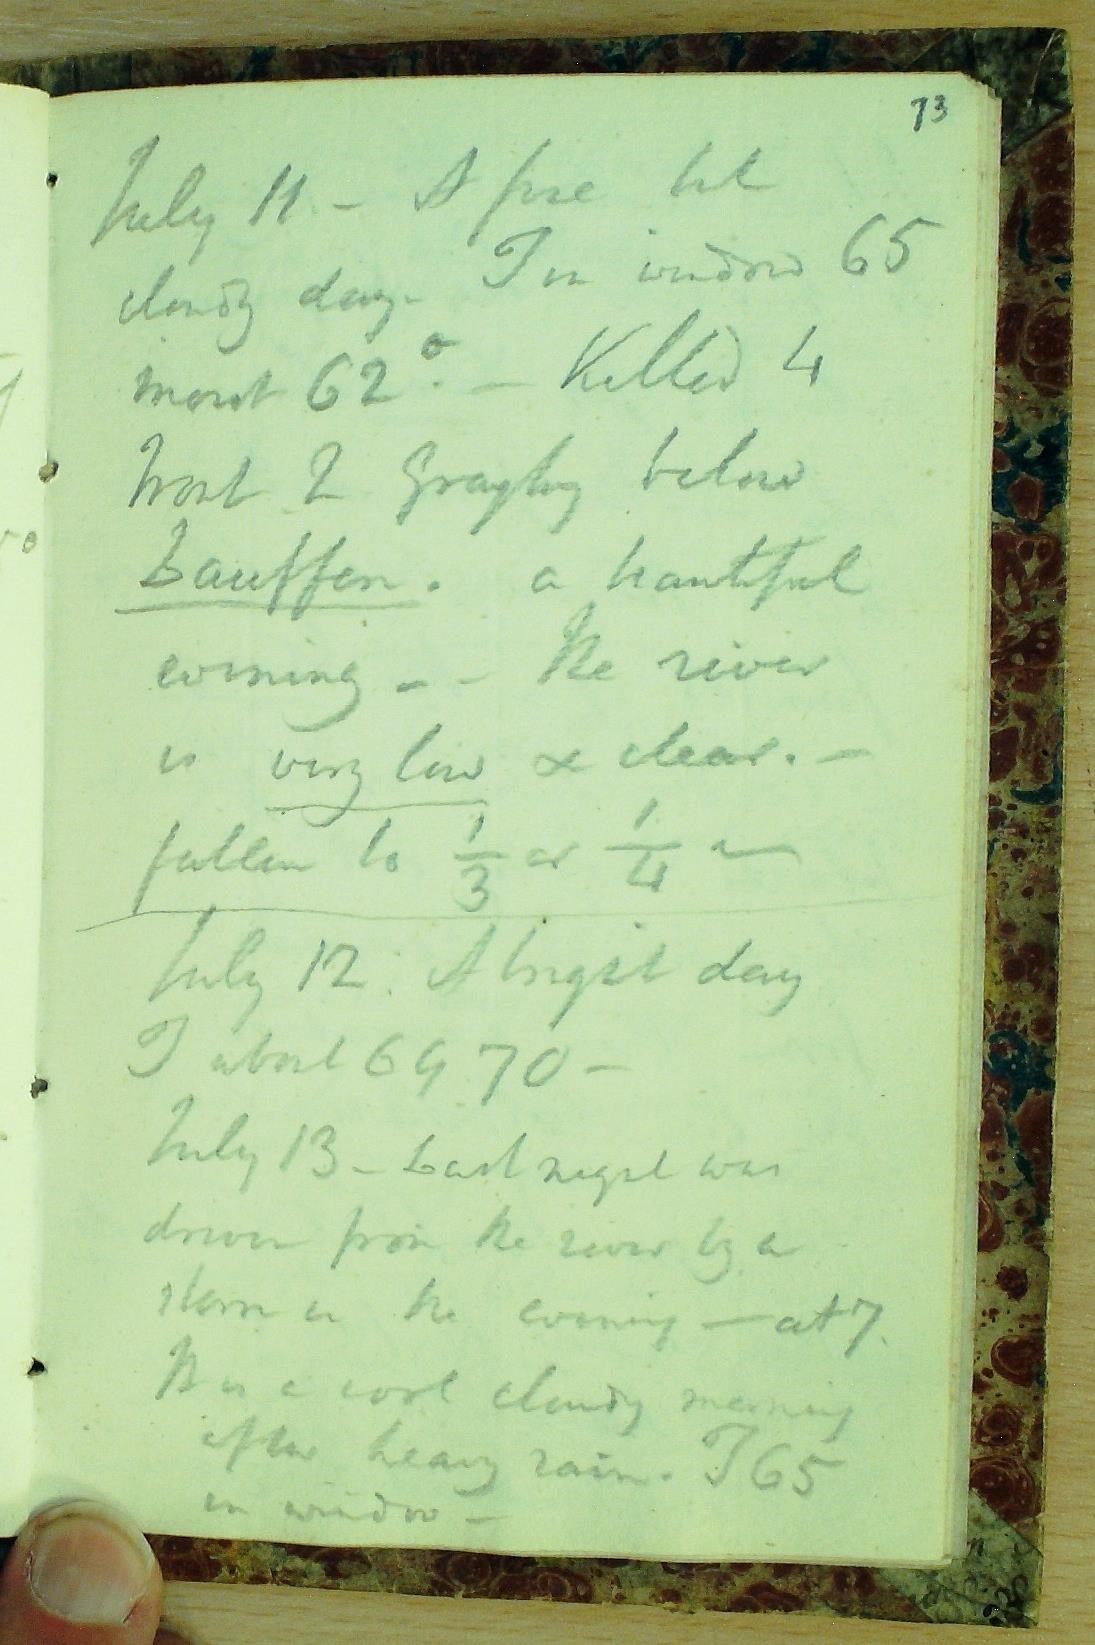 73
July 11 - A fine but
cloudy day. T in window 65
moist 62°. - Killed 4
Trout 2 Grayling below
Lauffen. a beautiful
evening - - the river
is very low & clear. -
fallen to 1/3 or 1/4
July 12. A bright day
T about 69 70 -
July 13 - Last night was
driven from the river by a
storm in the evening - at 7.
It is a cool cloudy morning
after heavy rain. T 65
in window -